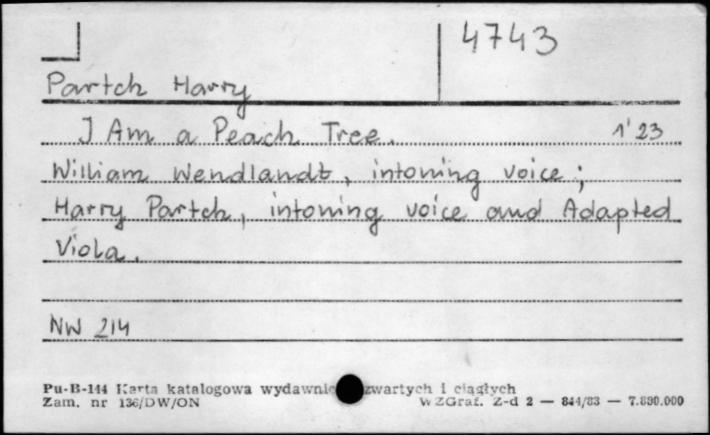 4743
Partch Harry
I Am a Peach Tree. 1'23
William Wendlandt, intoning voice;
Harry Partch, intoning voice and Adapted
Viola.
NW 214
Pu-B-144 Karta katalogowa zwartych i ciągłych
Zam. nr 136/DW/ON WZGraf. Z-d 2 — 844/83 — 7.890.000